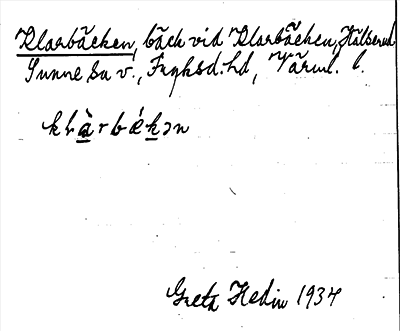 Klarbäcken, bäck vid Klarbäcken, Hälserud
Sunne sn v., Fryksd. hd, Värml. l.
klàrbǽkən
Greta Hedin 1934